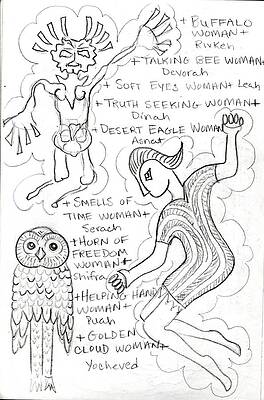 + BUFFALO
WOMAN +
Rivkeh
+ TALKING BEE WOMAN+
Devorah
+ SOFT EYES WOMAN+ Leah
+ TRUTH SEEKING WOMAN+
Dinah
+ DESERT EAGLE WOMAN
Asnat
+ SMELLS OF
TIME WOMAN+
Serach
+ HORN OF
FREEDOM
WOMAN+
Shifra
+ HELPING HAND
WOMAN+
Puah
+ GOLDEN
CLOUD WOMAN+
Yocheved